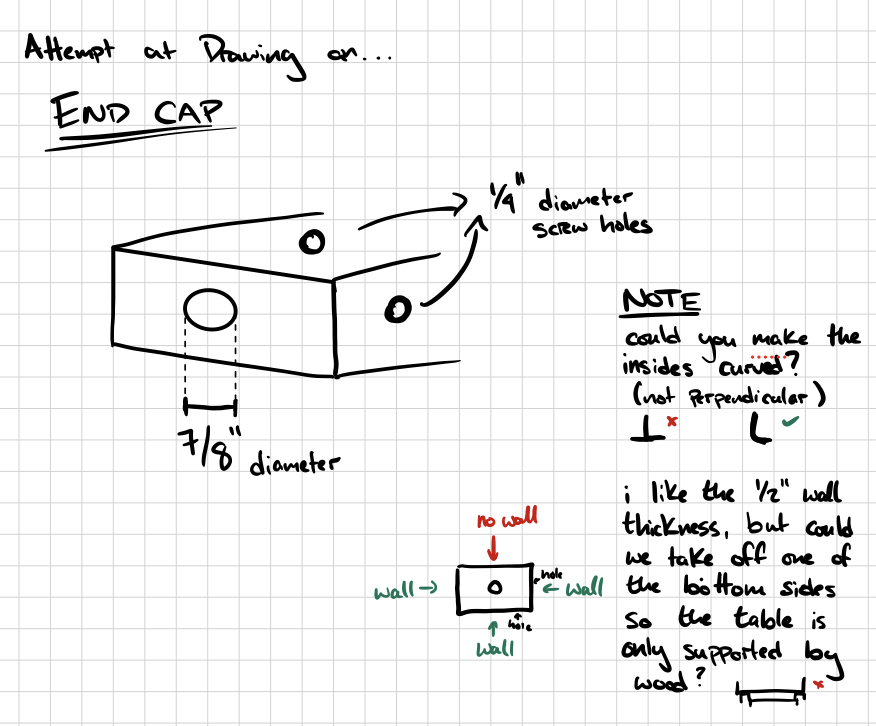 Attempt at Drawing an...
END CAP
1/4" diameter
screw holes
7/8" diameter
NOTE
could you make the
insides curved?
(not perpendicular)
i like the 1/2" wall
thickness, but could
we take off one of
the bottom sides
so the table is
only supported by
wood?
no wall
wall
hole
wall
hole
wall